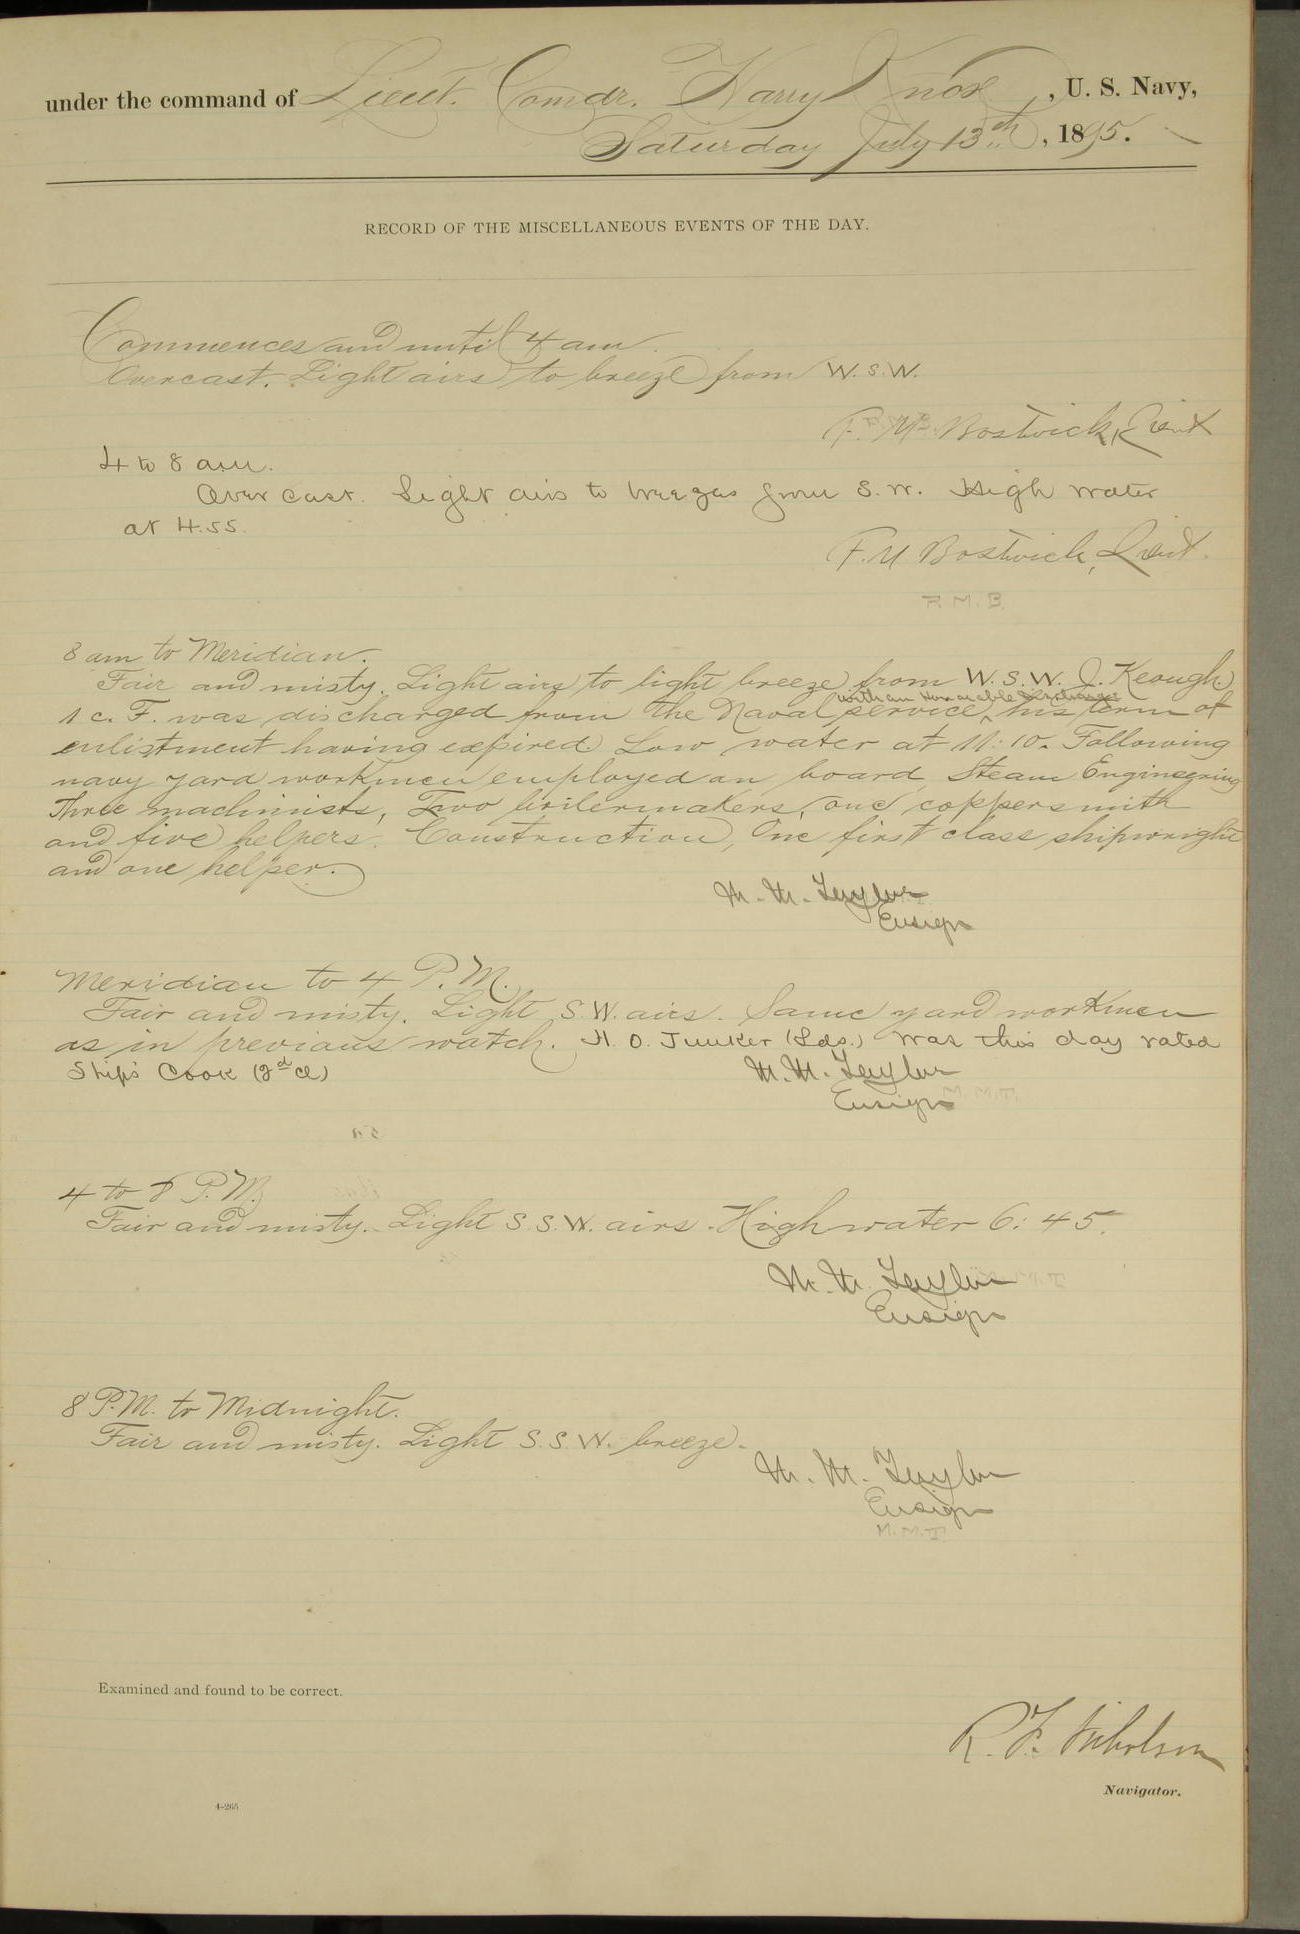 under the command of Lieut. Comdr. Harry Knox, U. S. Navy,
Saturday July 13th, 1895.
RECORD OF THE MISCELLANEOUS EVENTS OF THE DAY.
Commences and until 4 am.
Overcast. Light airs to breeze from W.S.W.
F. M. Bostwick, Lieut
4 to 8 a.m.
Overcast. Light airs to breezes from S.W. High water
at 4.55.
F. M Bostwick, Lieut.
F.M.B.
8 am to Meridian.
Fair and misty. Light airs to light breeze from W.S.W. J. Keough.
with an Honorable Discharge
1 c. F. was discharged from the Naval service, his term of
enlistment having expired. Low water at 11:10. Following
navy yard workmen employed on board, Steam Engineering
Three machinists, Two boilermakers, one coppersmith
and five helpers. Construction, One first class shipwright
and one helper.
M. M. Taylor
Ensign
Meridian to 4 P.M.
Fair and misty. Light S.W. airs. Same yard workmen
as in previous watch. H. O. Junker (Lds.) was this day rated
Ship's Cook (2d cl)
M. M. Taylor
Ensign
M.M.T.
4 to 8 P.M.
Fair and misty. Light S.S.W. airs. High water 6:45.
M. M. Taylor
Ensign
8 P.M. to Midnight.
Fair and misty. Light S.S.W. breeze.
M. M. Taylor
Ensign
M.M.T.
Examined and found to be correct.
R. F. Nicholson
Navigator.
4-265